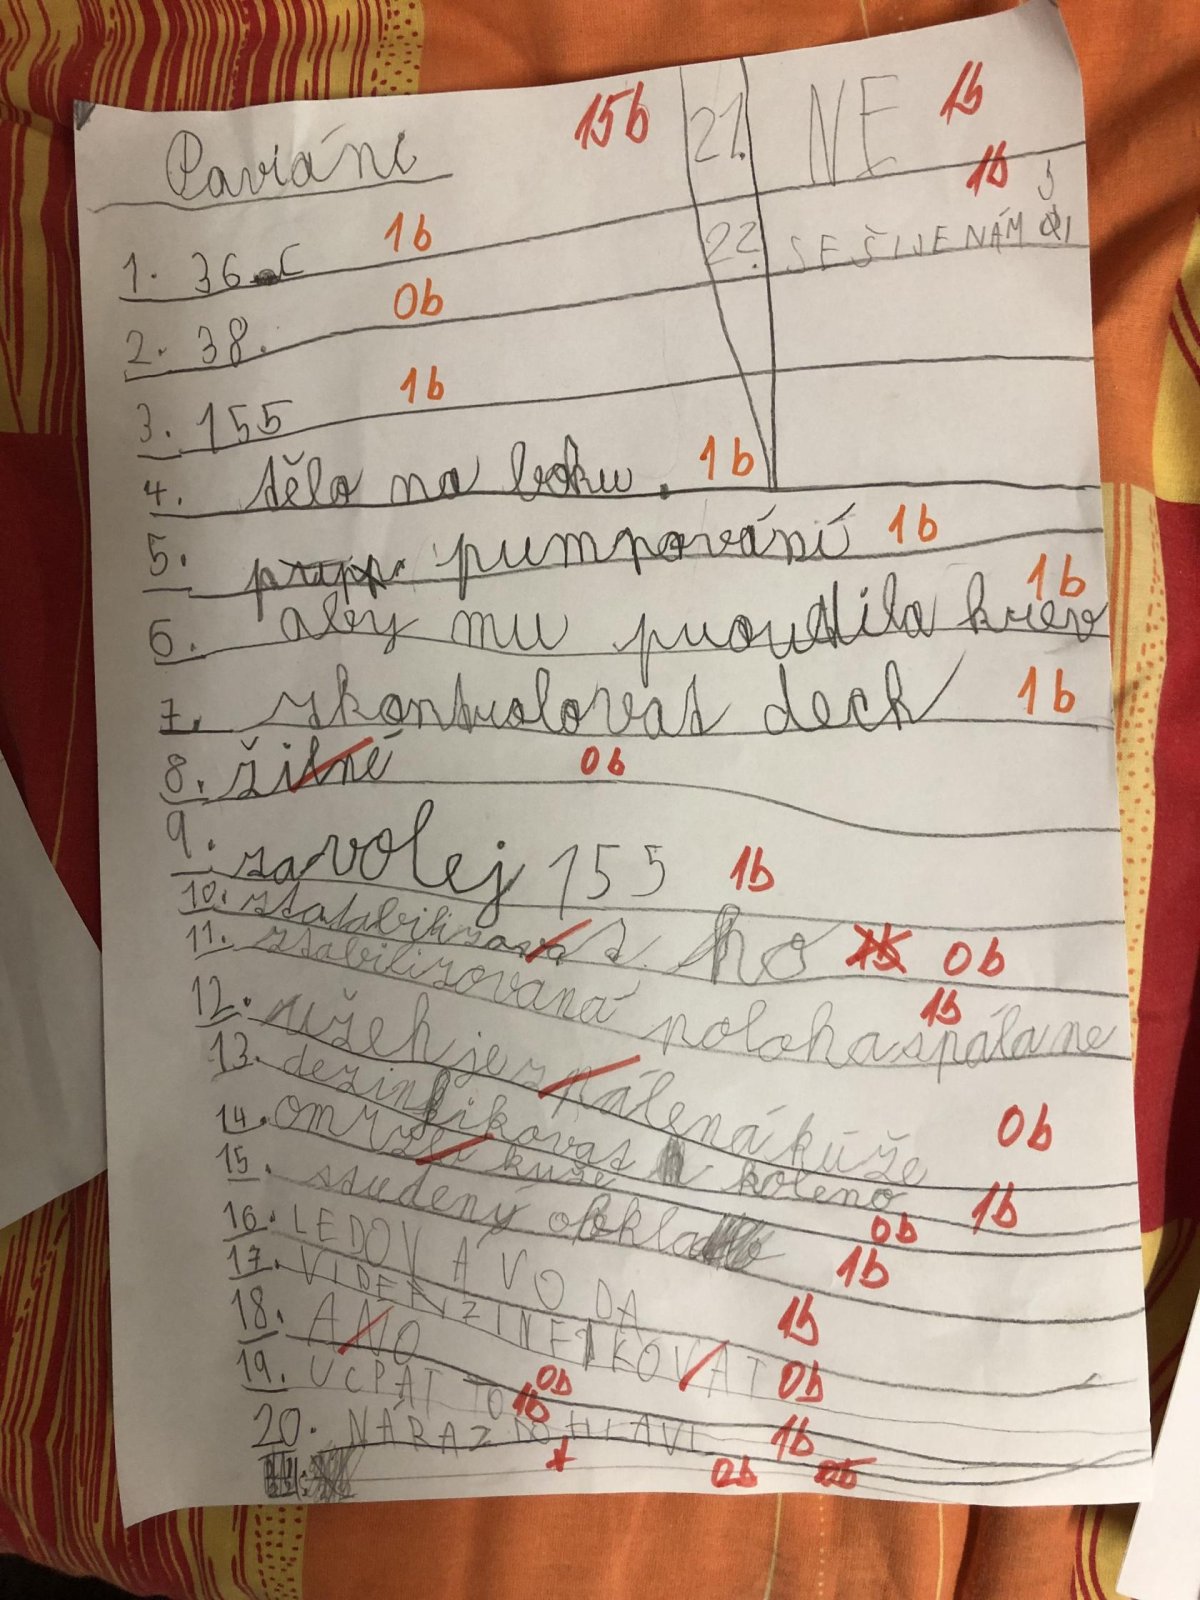 Paviáni 15b
1. 36 C 1b
2. 38. 0b
3. 155 1b
4. tělo na boku. 1b
5. pumpování 1b
6. aby mu proudila krev 1b
7. zkontrolovat dech 1b
8. žilné 0b
9. zavolej 155 1b
10. ho 0b
11. stabilizovaná poloha 1b
12. užeh je spálená kůže 0b
13. dezinfikovat koleno 1b
14. omrzlí kůže 0b
15. studený obklad 1b
16. LEDOVÁ VODA 1b
17. VIDEZINFIKOVAT 0b
18. ANO 0b
19. UCPAT TO 1b
20. NÁRAZ DO HLAVI 1b
0b
21. NE 1b
22. SEŠIJE NÁM 1b